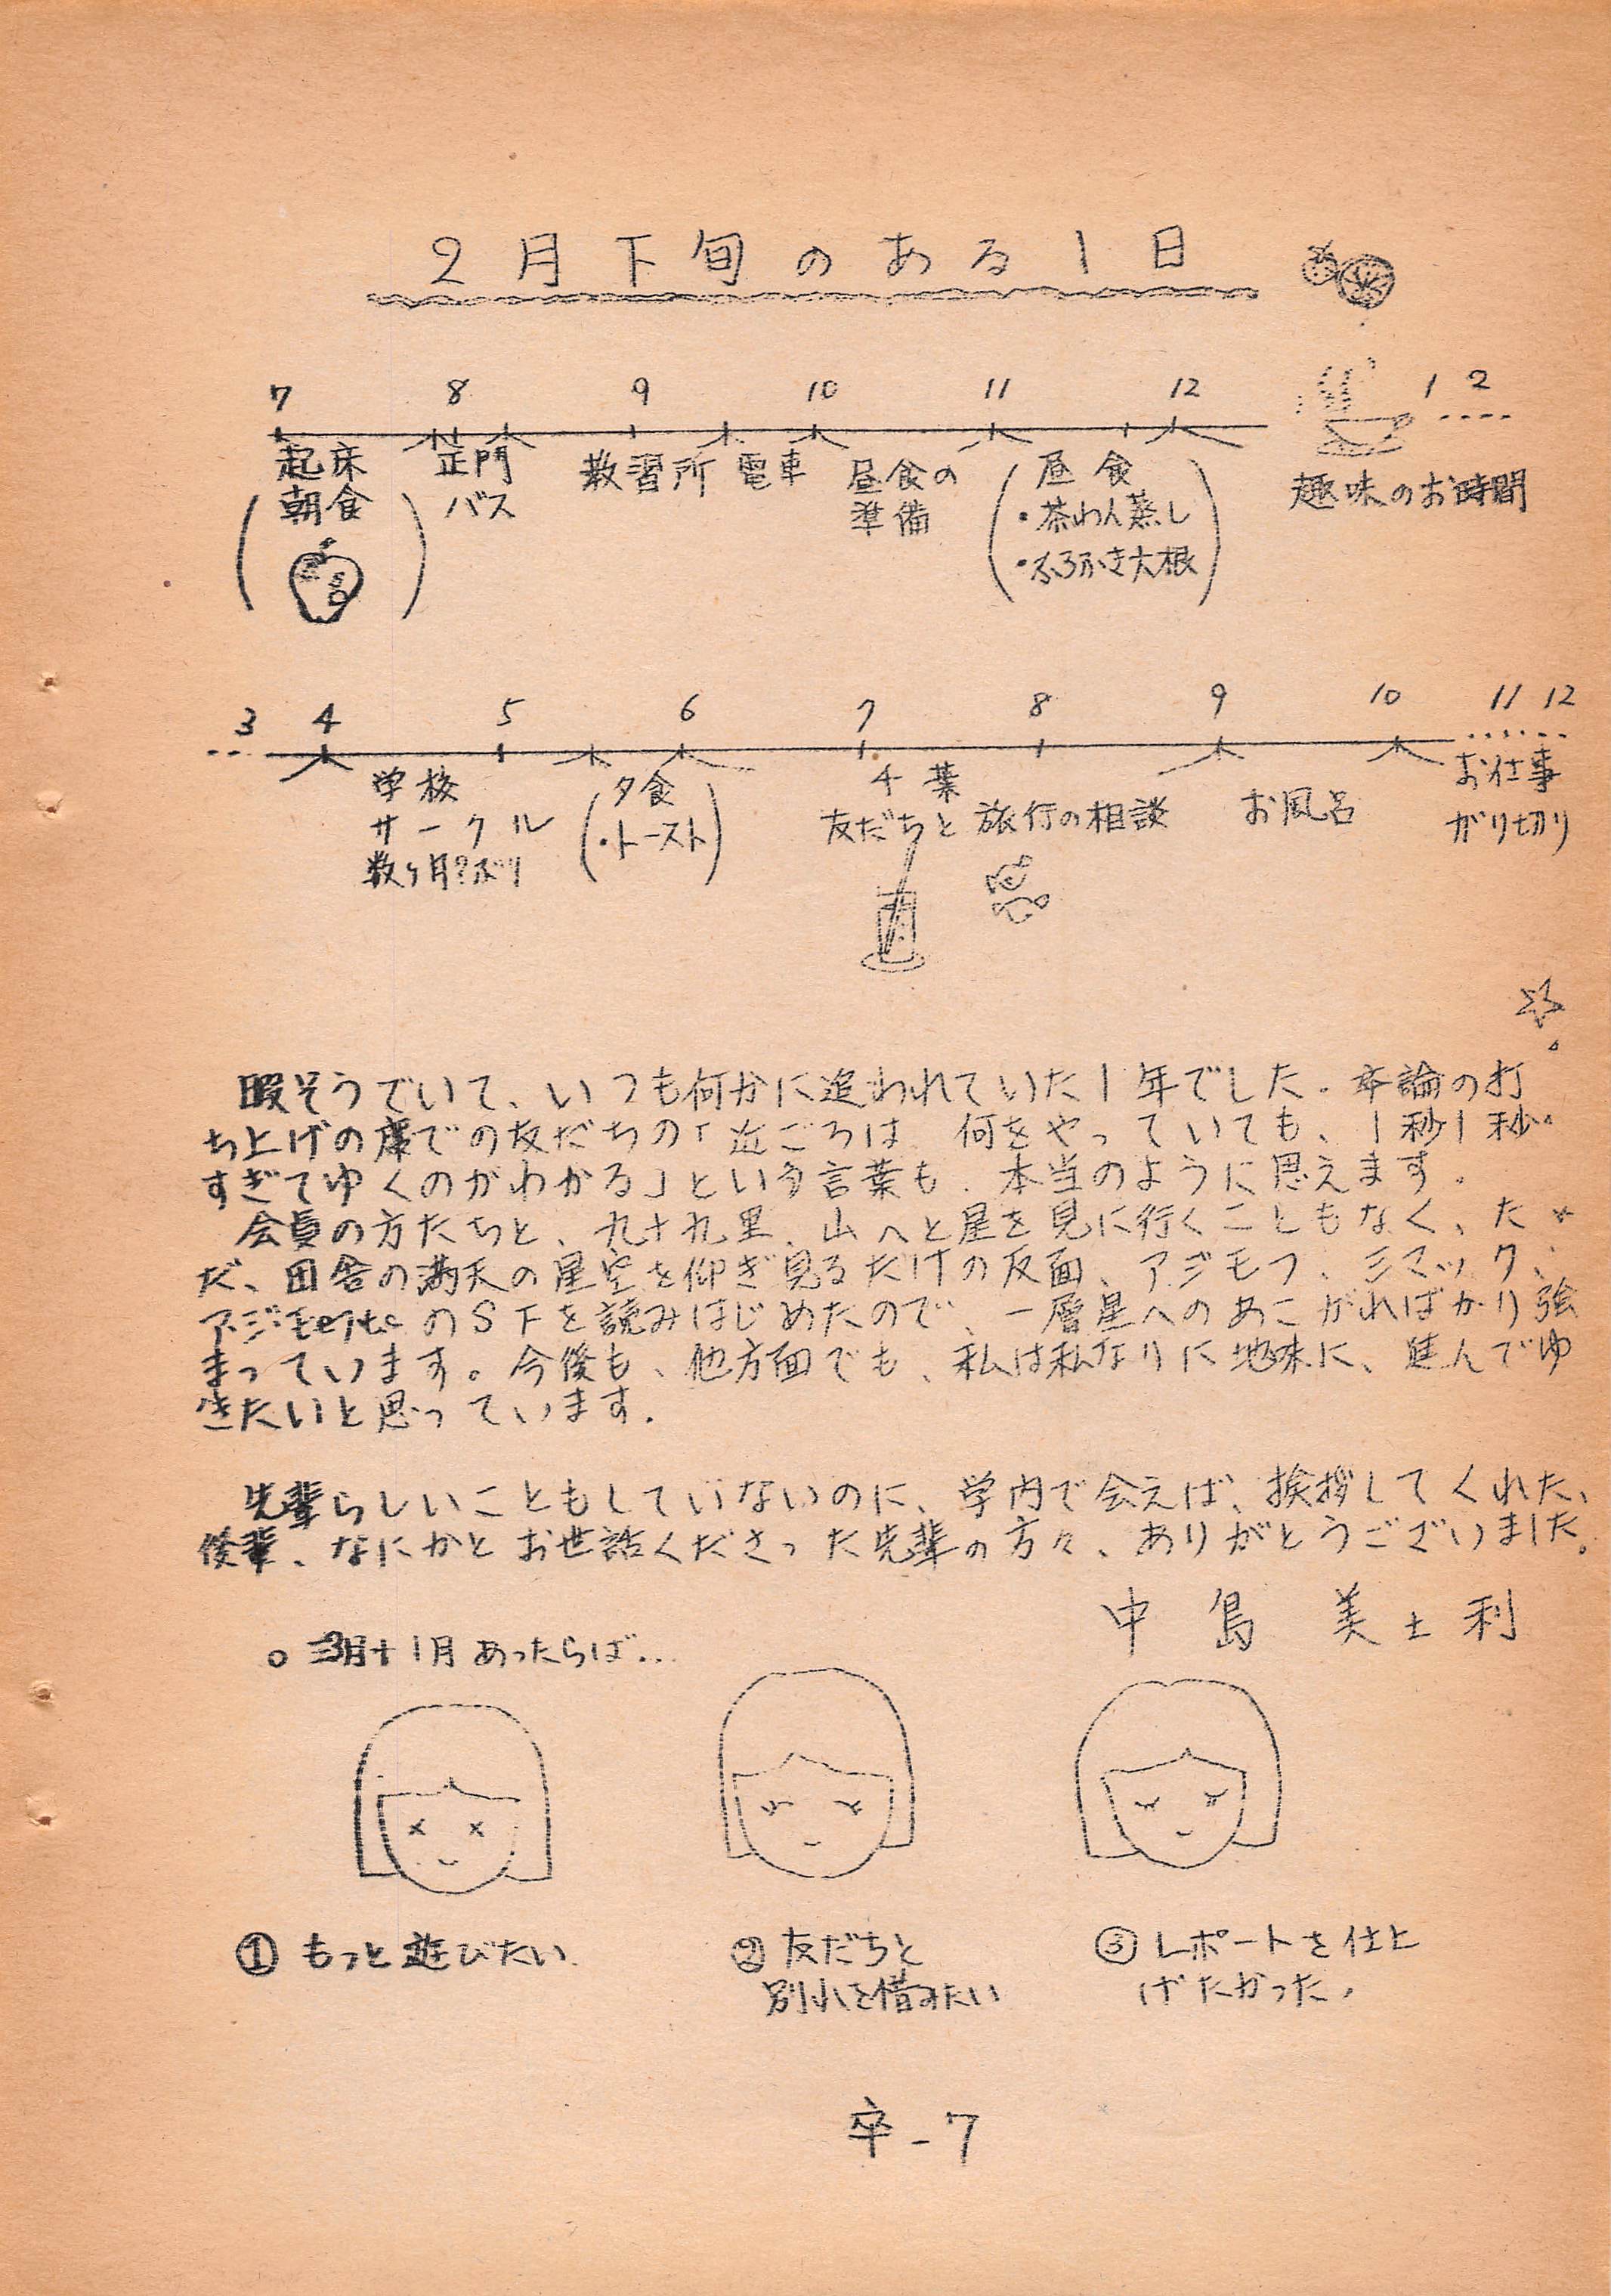 2月下旬のある1日
7 8 9 10 11 12 1 2
起床 正門 教習所 電車 昼食の 昼食 趣味のお時間
朝食 バス 準備 ・茶わん蒸し
・ふろふき大根
3 4 5 6 7 8 9 10 11 12
学校 夕食 千葉 お仕事
サークル ・トースト 友だちと 旅行の相談 お風呂 がり切り
数ヶ月?ぶり
暇そうでいて、いつも何かに追われていた1年でした。卒論の打
ち上げの席での友だちの「近ごろは 何をやっていても、1秒1秒
すぎてゆくのがわかる」という言葉も、本当のように思えます。
会員の方たちと、九十九里、山へと星を見に行くこともなく、た
だ、田舎の満天の星空を仰ぎ見るだけの反面、アジモフ、シマック、
のSFを読みはじめたので、一層星へのあこがればかり強
まっています。今後も、他方面でも、私は私なりに地味に、進んでゆ
きたいと思っています。
先輩らしいこともしていないのに、学内で会えば、挨拶してくれた、
後輩、なにかとお世話くださった先輩の方々、ありがとうございました。
中島 美土利
○ 3月+1月あったらば..
① もっと遊びたい
② 友だちと
別れを惜みたい
③ レポートを仕上
げたかった。
卒-7